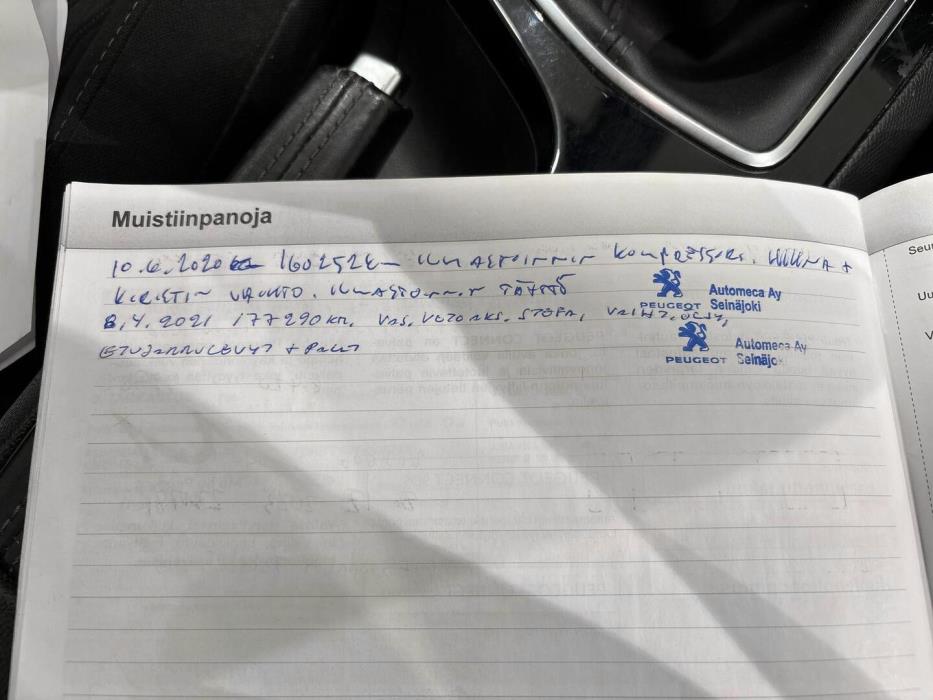 Muistiinpanoja
10.6.2020 160252 ILMASTOINNIN KOMPRESSORI, HIHNA +
KIRISTIN VAIHTO. ILMASTOINNIN TÄYTTÖ
PEUGEOT Automeca Ay Seinäjoki
8.4.2021 177290 km, VAS. VETOAKS. STEFA, VAIHT. ÖLJY,
ETUJARRULEVYT + PALAT
PEUGEOT Automeca Ay Seinäjo
Seur
Uu
V